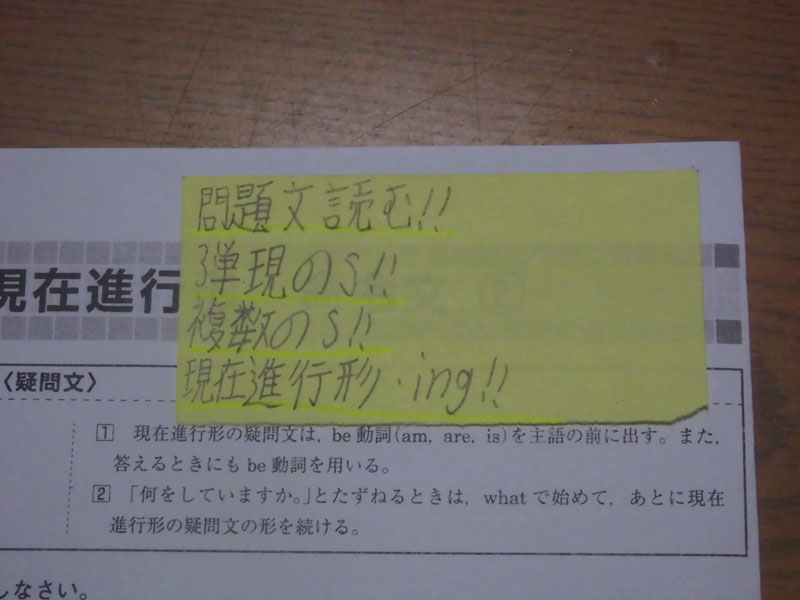 問題文読む!!
3単現のS!!
複数のS!!
現在進行形・ing!!
現在進行 文 ②
〈疑問文〉
1 現在進行形の疑問文は，be動詞(am, are, is)を主語の前に出す。また，
答えるときにもbe動詞を用いる。
2 「何をしていますか。」とたずねるときは，whatで始めて，あとに現在
進行形の疑問文の形を続ける。
しなさい。